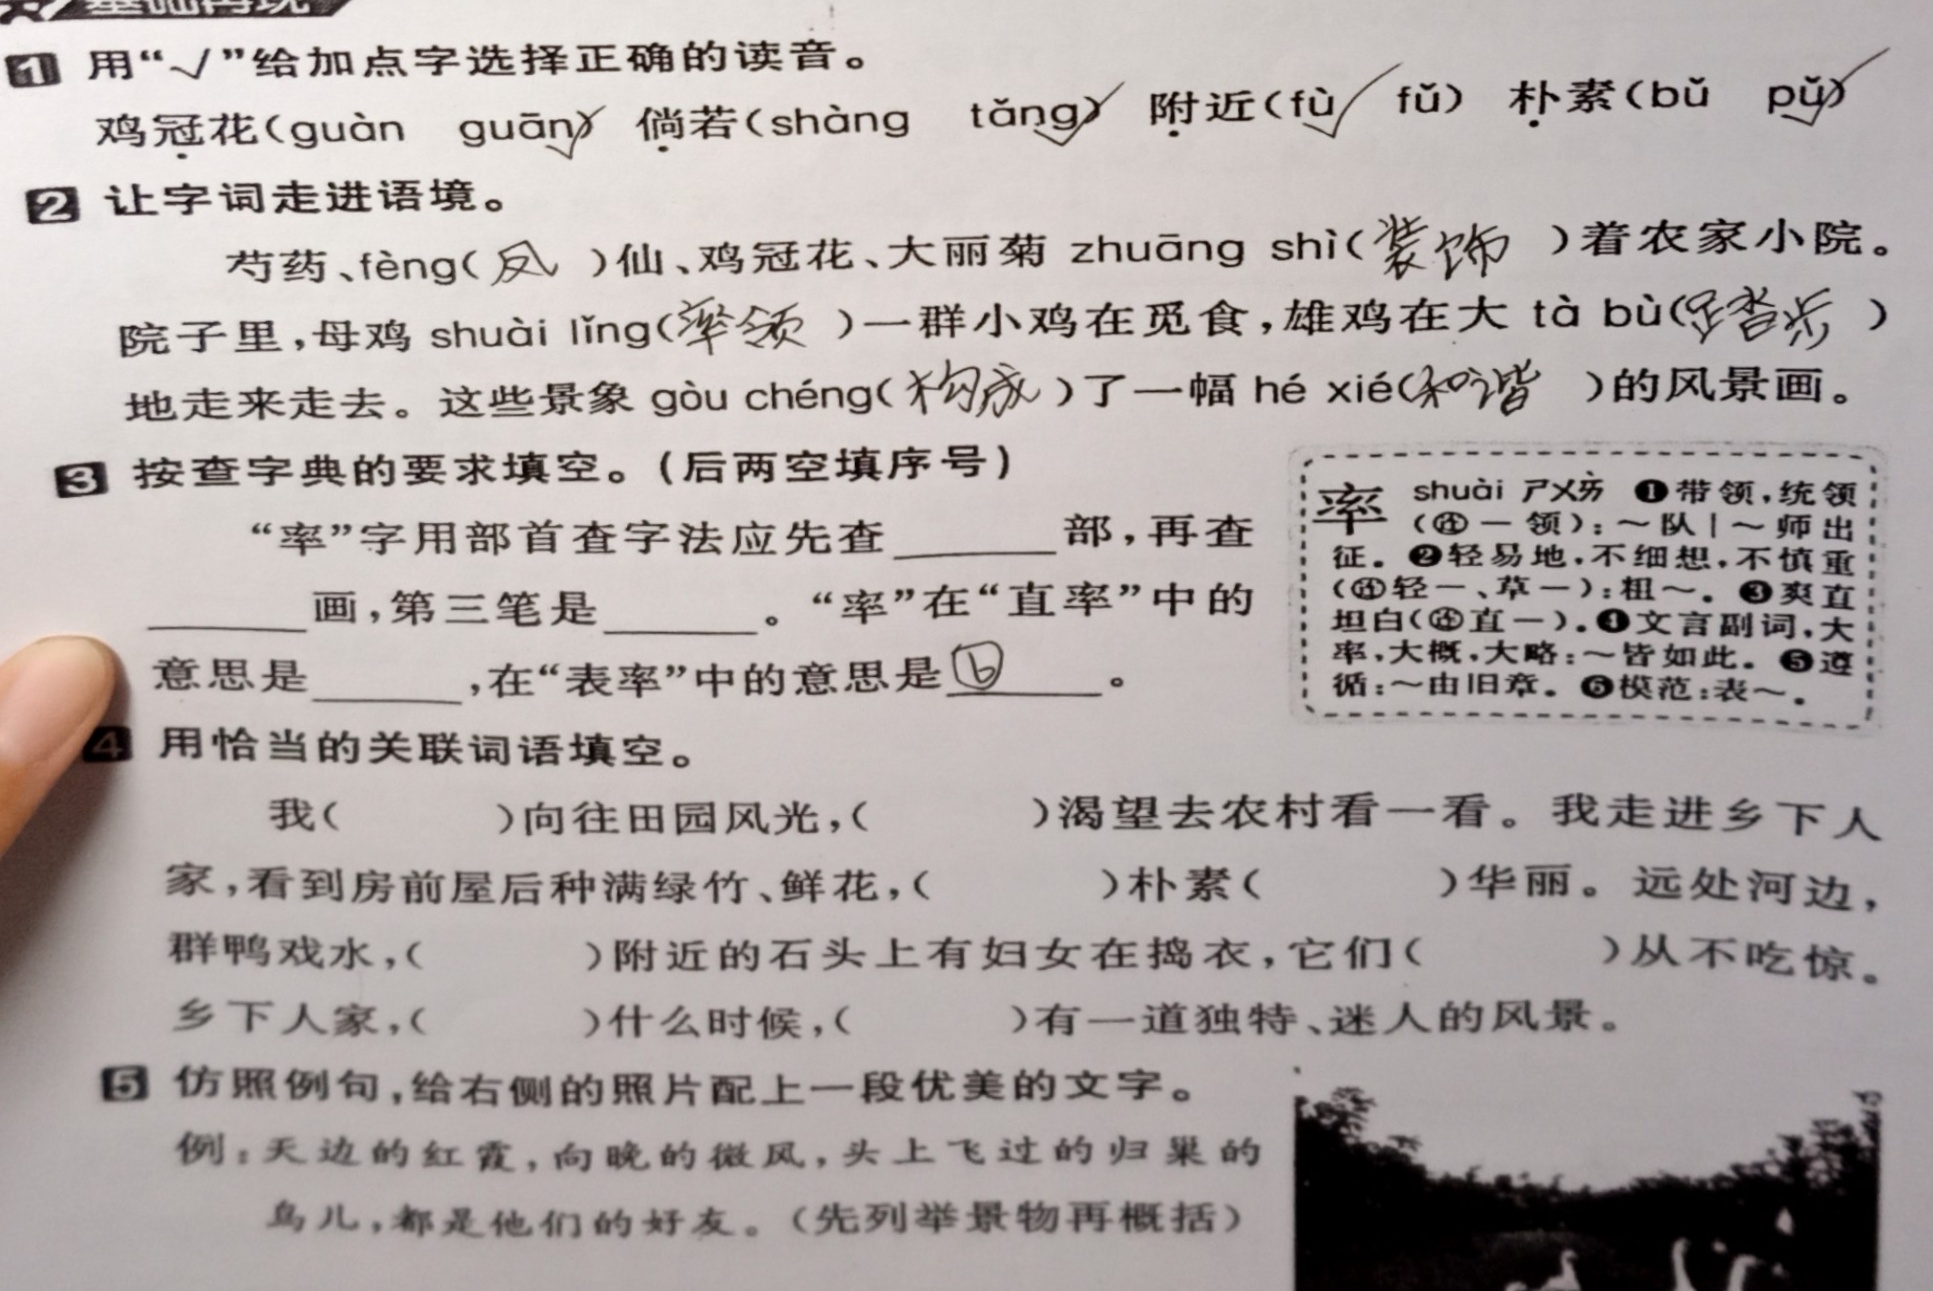 基础再现
1 用“√”给加点字选择正确的读音。
鸡冠花(guàn guān)√ 倘若(shàng tǎng)√ 附近(fù√ fǔ) 朴素(bǔ pǔ)√
2 让字词走进语境。
芍药、fèng(凤)仙、鸡冠花、大丽菊 zhuāng shì(装饰)着农家小院。
院子里,母鸡 shuài lǐng(率领)一群小鸡在觅食,雄鸡在大 tà bù(踏步)
地走来走去。这些景象 gòu chéng(构成)了一幅 hé xié(和谐)的风景画。
3 按查字典的要求填空。(后两空填序号)
“率”字用部首查字法应先查______部,再查
______画,第三笔是______。“率”在“直率”中的
意思是______,在“表率”中的意思是⑥。
率 shuài ㄕㄨㄞˋ ❶带领,统领
(㊣—领):～队|～师出
征。❷轻易地,不细想,不慎重
(㊣轻—、草—):粗～。❸爽直
坦白(㊣直—)。❹文言副词,大
率,大概,大略:～皆如此。❺遵
循:～由旧章。❻模范:表～。
4 用恰当的关联词语填空。
我( )向往田园风光,( )渴望去农村看一看。我走进乡下人
家,看到房前屋后种满绿竹、鲜花,( )朴素( )华丽。远处河边,
群鸭戏水,( )附近的石头上有妇女在捣衣,它们( )从不吃惊。
乡下人家,( )什么时候,( )有一道独特、迷人的风景。
5 仿照例句,给右侧的照片配上一段优美的文字。
例:天边的红霞,向晚的微风,头上飞过的归巢的
鸟儿,都是他们的好友。(先列举景物再概括)